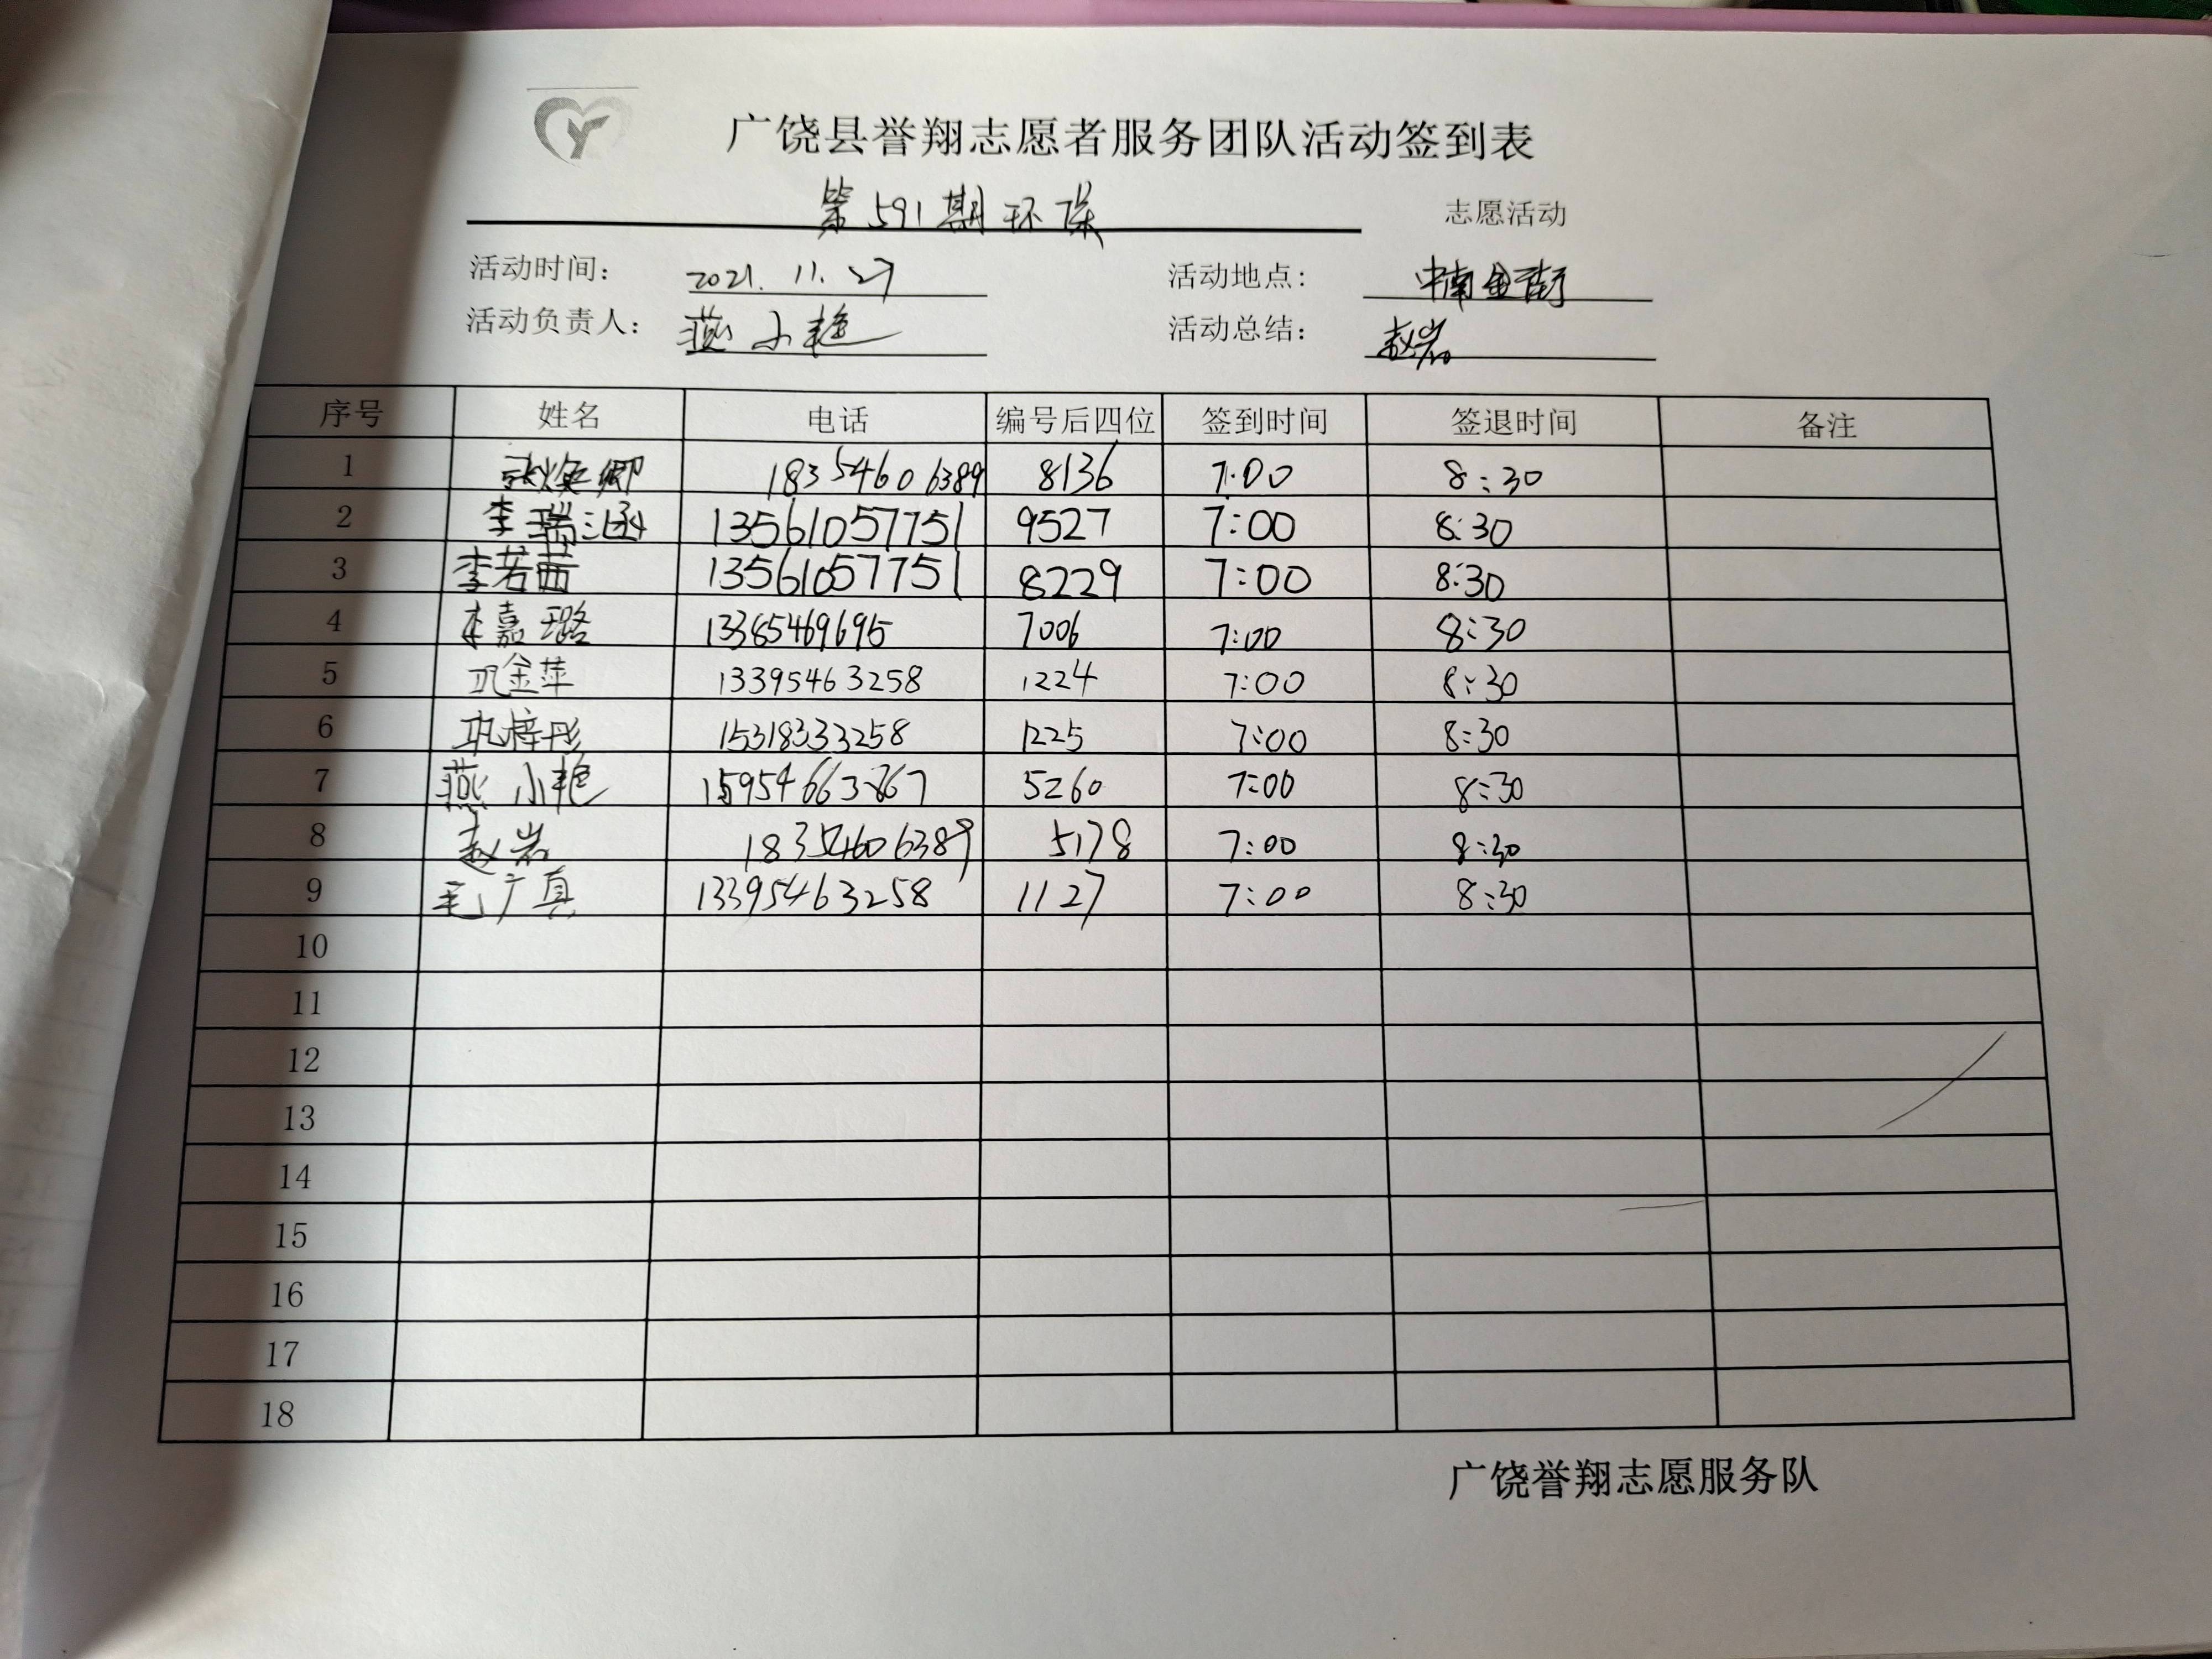 广饶县誉翔志愿者服务团队活动签到表
第591期环保 志愿活动
活动时间: 2021.11.27 活动地点: 中南金街
活动负责人: 燕小艳 活动总结: 赵岩
序号 姓名 电话 编号后四位 签到时间 签退时间 备注
1 18354606389 8136 7:00 8:30
2 李瑞涵 13561057751 9527 7:00 8:30
3 李若茜 13561057751 8229 7:00 8:30
4 李嘉璐 13385469695 7006 7:00 8:30
5 巩金萍 13395463258 1224 7:00 8:30
6 巩梓彤 15318333258 1225 7:00 8:30
7 燕小艳 5260 7:00 8:30
8 赵岩 18354606389 5178 7:00 8:30
9 毛广真 13395463258 1127 7:00 8:30
10
11
12
13
14
15
16
17
18
广饶誉翔志愿服务队